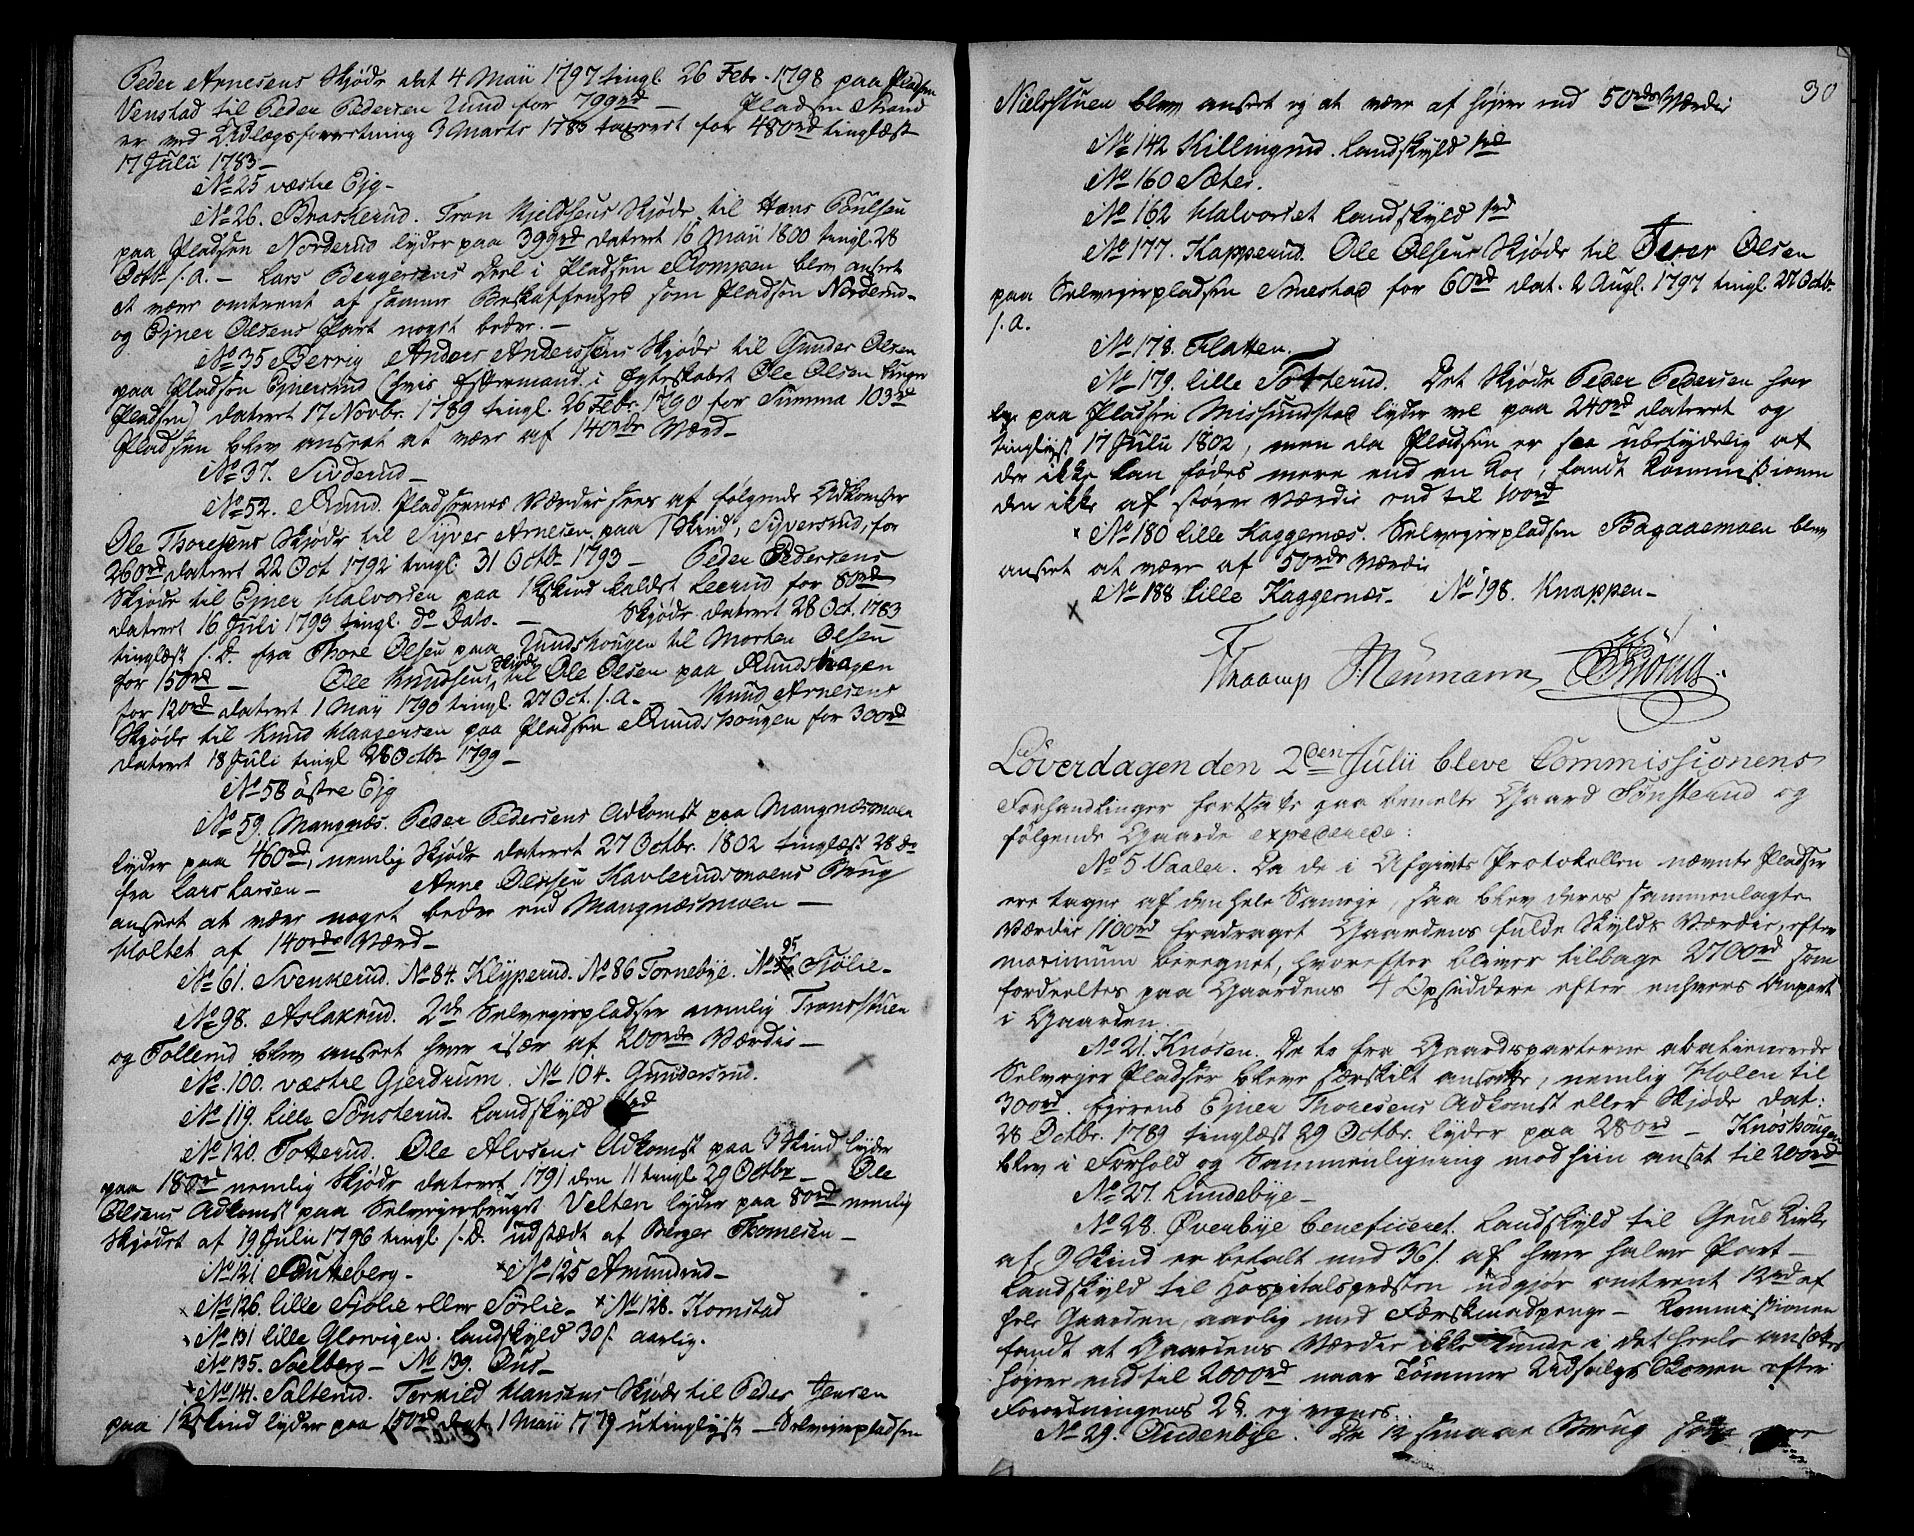 Peder Arnesens Skjøde dat 4 Maii 1797 tingl. 26 Febr. 1798 paa Pladsen
Venstad til Peder Pedersen lund for 799rd — Pladsen Strand
er ved Udlægsforretning 3 Marts 1783 taxeret for 480rd tinglæst
17 Julii 1783 —
No 25 væstre Eig —
No 26. Braskerud. Tron Kieldsens Skjøde til Hans Poulsen
paa Pladsen Norderud lyder paa 399rd dateret 16 Maii 1800 tingl. 28
Octbr s. A. — Lars Bergersens Deel i Pladsen Rompen blev anseet
at være omtrent af samme Beskaffenhed som Pladsen Norderud —
og Ejner Olsens Part noget bedre. —
No 35 Berrig Anders Anderssens Skjøde til Gunder Olsen
paa Pladsen Ejnersrud (hvis Eftermand i Egteskabet Ole Olsen
Pladsen) dateret 17 Novbr. 1789 tingl. 26 Febr. 1790 for Summa 103rd
Pladsen blev anseet at være af 140rds Værd —
No 37. Sidderud —
No 52. Rund. Pladsernes Værdie sees af følgende Adkomster
Ole Thoresens Skjøde til Syver Arnesen paa 1 Skind, Syversrud, for
260rd dateret 22 Oct 1792 tingl. 31 Octb 1793 — Peder Pedersens
Skjøde til Ejner Halvorsen paa 1 Skind kaldet Leerud for 80rd
dateret 16 Juli 1793 tingl. do Dato. — Skjøde dateret 28 Oct. 1783
tinglæst s. D. fra Thore Olsen paa Rundshougen til Morten Olsen
for 150rd — Ole Knudsens Skjøde til Ole Olsen paa Rundshagen
for 120rd dateret 1 Maii 1790 tingl. 27 Oct. s. A. — Knud Arnesens
Skjøde til Knud Haagensen paa Pladsen Rundshougen for 300rd
dateret 18 Juli tingl 28 Octbr 1799 —
No 58 østre Eig
No 59. Mangnæs. Peder Pedersens Adkomst paa Mangnæsmoen
lyder paa 460rd, nemlig Skjøde dateret 27 Octbr. 1802 tinglæst 28 do
fra Lars Larsen — Arne Olssen Havlerudsmoens Brug
anseet at være noget bedre end Mangnæsmoen —
Holtet af 140rds Værd —
No 61. Svenkerud. No 84. Klypperud. No 86 Tornebye. No 95 Sjølie —
No 98. Aslakrud. 2de Selveierpladse nemlig Tronsstuen
og Tollerud blev anseet hver især af 200rds Værdie —
No 100. væstre Gjerdrum. No 104. Gundersrud.
No 119. lille Tønsterud. Landskyld rd
No 120. Totterud. Ole Alvsens Adkomst paa 3 Skind lyder
paa 180rd nemlig Skjøde dateret 1791 den 11 tingl 29 Octbr — Ole
Olsens Adkomst paa Selveierbruget Velten lyder paa 80rd nemlig
Skjødet af 19 Julii 1796 tingl s. D. udstædt af Berger Thomesen —
No 121 Fouskeberg. — No 125 Amundrud —
No 126. lille Sjølie eller Sørlie. No 128. Kornstad
No 131 lille Glorvigen. Landskyld 30s. aarlig.
No 135. Soelberg — No 139. Ous —
No 141. Salterud. Terkild Hansens Skjøde til Peder Jensen
paa 1 Skind lyder paa 150rd dat 1 Maii 1779 utinglyst — Selveierpladsen
30
Nielsstuen blev anseet ej at være af høiere end 50rds Værdie
No 142 Killingrud. Landskyld 1rd
No 160 Sæter.
No 162 Halvorset Landskyld 1rd
No 177. Kapperud. Ole Olsens Skjøde til Iver Olsen
paa Selveierpladsen Smestad for 60rd dat. 2 Augl. 1797 tingl. 27 Octb.
s. A.
No 178. Flatten.
No 179. lille Totterud. Det Skjøde Peder Pedersen har
paa Pladsen Missundstad lyder vel paa 240rd dateret og
tinglyst 17 Julii 1802, men da Pladsen er saa ubetydelig at
der ikke kan fødes mere end en Koe, fandt Kommissionen
den ikke af større Værdie end til 100rd
No 180 lille Kaggernæs. Selveierpladsen Bagaaemoen blev
anseet at være af 50rds Værdie
No 188 lille Kaggernæs — No 198. Knappen —
Thaamp J. Neumann König
Løverdagen den 2den Julii bleve Commissionens
Forhandlinger fortsatte paa bemelte Gaard Tønsterud og
følgende Gaarde expederede:
No 5 Vaaler. Da de i Afgivts Protokollen nævnte Pladser
ere tagne af den hele Sameie, saa blev deres sammenlagte
Værdie 1100rd fradraget Gaardens fulde Skylds Værdie, efter
maximum beregnet, hvorefter bliver tilbage 2700rd som
fordeeltes paa Gaardens 4 Opsiddere efter enhvers Anpart
i Gaarden.
No 21. Knøsen. De to fra Gaardsparterne abalienerede
Selveger Pladser bleve særskilt ansatte, nemlig Holen til
300rd. Ejerens Ejner Thoresens Adkomst eller Skjøde dat:
28 Octbr. 1789 tinglæst 29 Octbr. lyder paa 280rd — Knøshougen
blev i Forhold og Sammenligning mod hiin ansat til 200rd
No 27. Lundebye —
No 28. Øverbye beneficeret. Landskyld til Grue Kirke
af 9 Skind er betalt med 36s. af hver halve Part —
Landskyld til Hospitalspræsten udgjør omtrent 12rd af
hele Gaarden, aarlig med Færskmadpenge — Kommissionen
fandt at Gaardens Værdie ikke kunde i det heele ansættes
høiere end til 2000rd naar Tømmer Udsalgs Skoven efter
Forordningens 2 §. ej regnes.
No 29. Oudenbye. De 12 smaae Brug